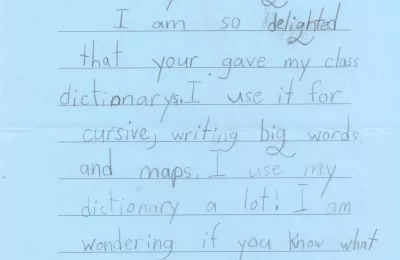 I am so delighted
that your gave my class
dictionarys. I use it for
cursive, writing big words
and maps. I use my
dictionary a lot! I am
wondering if you know what